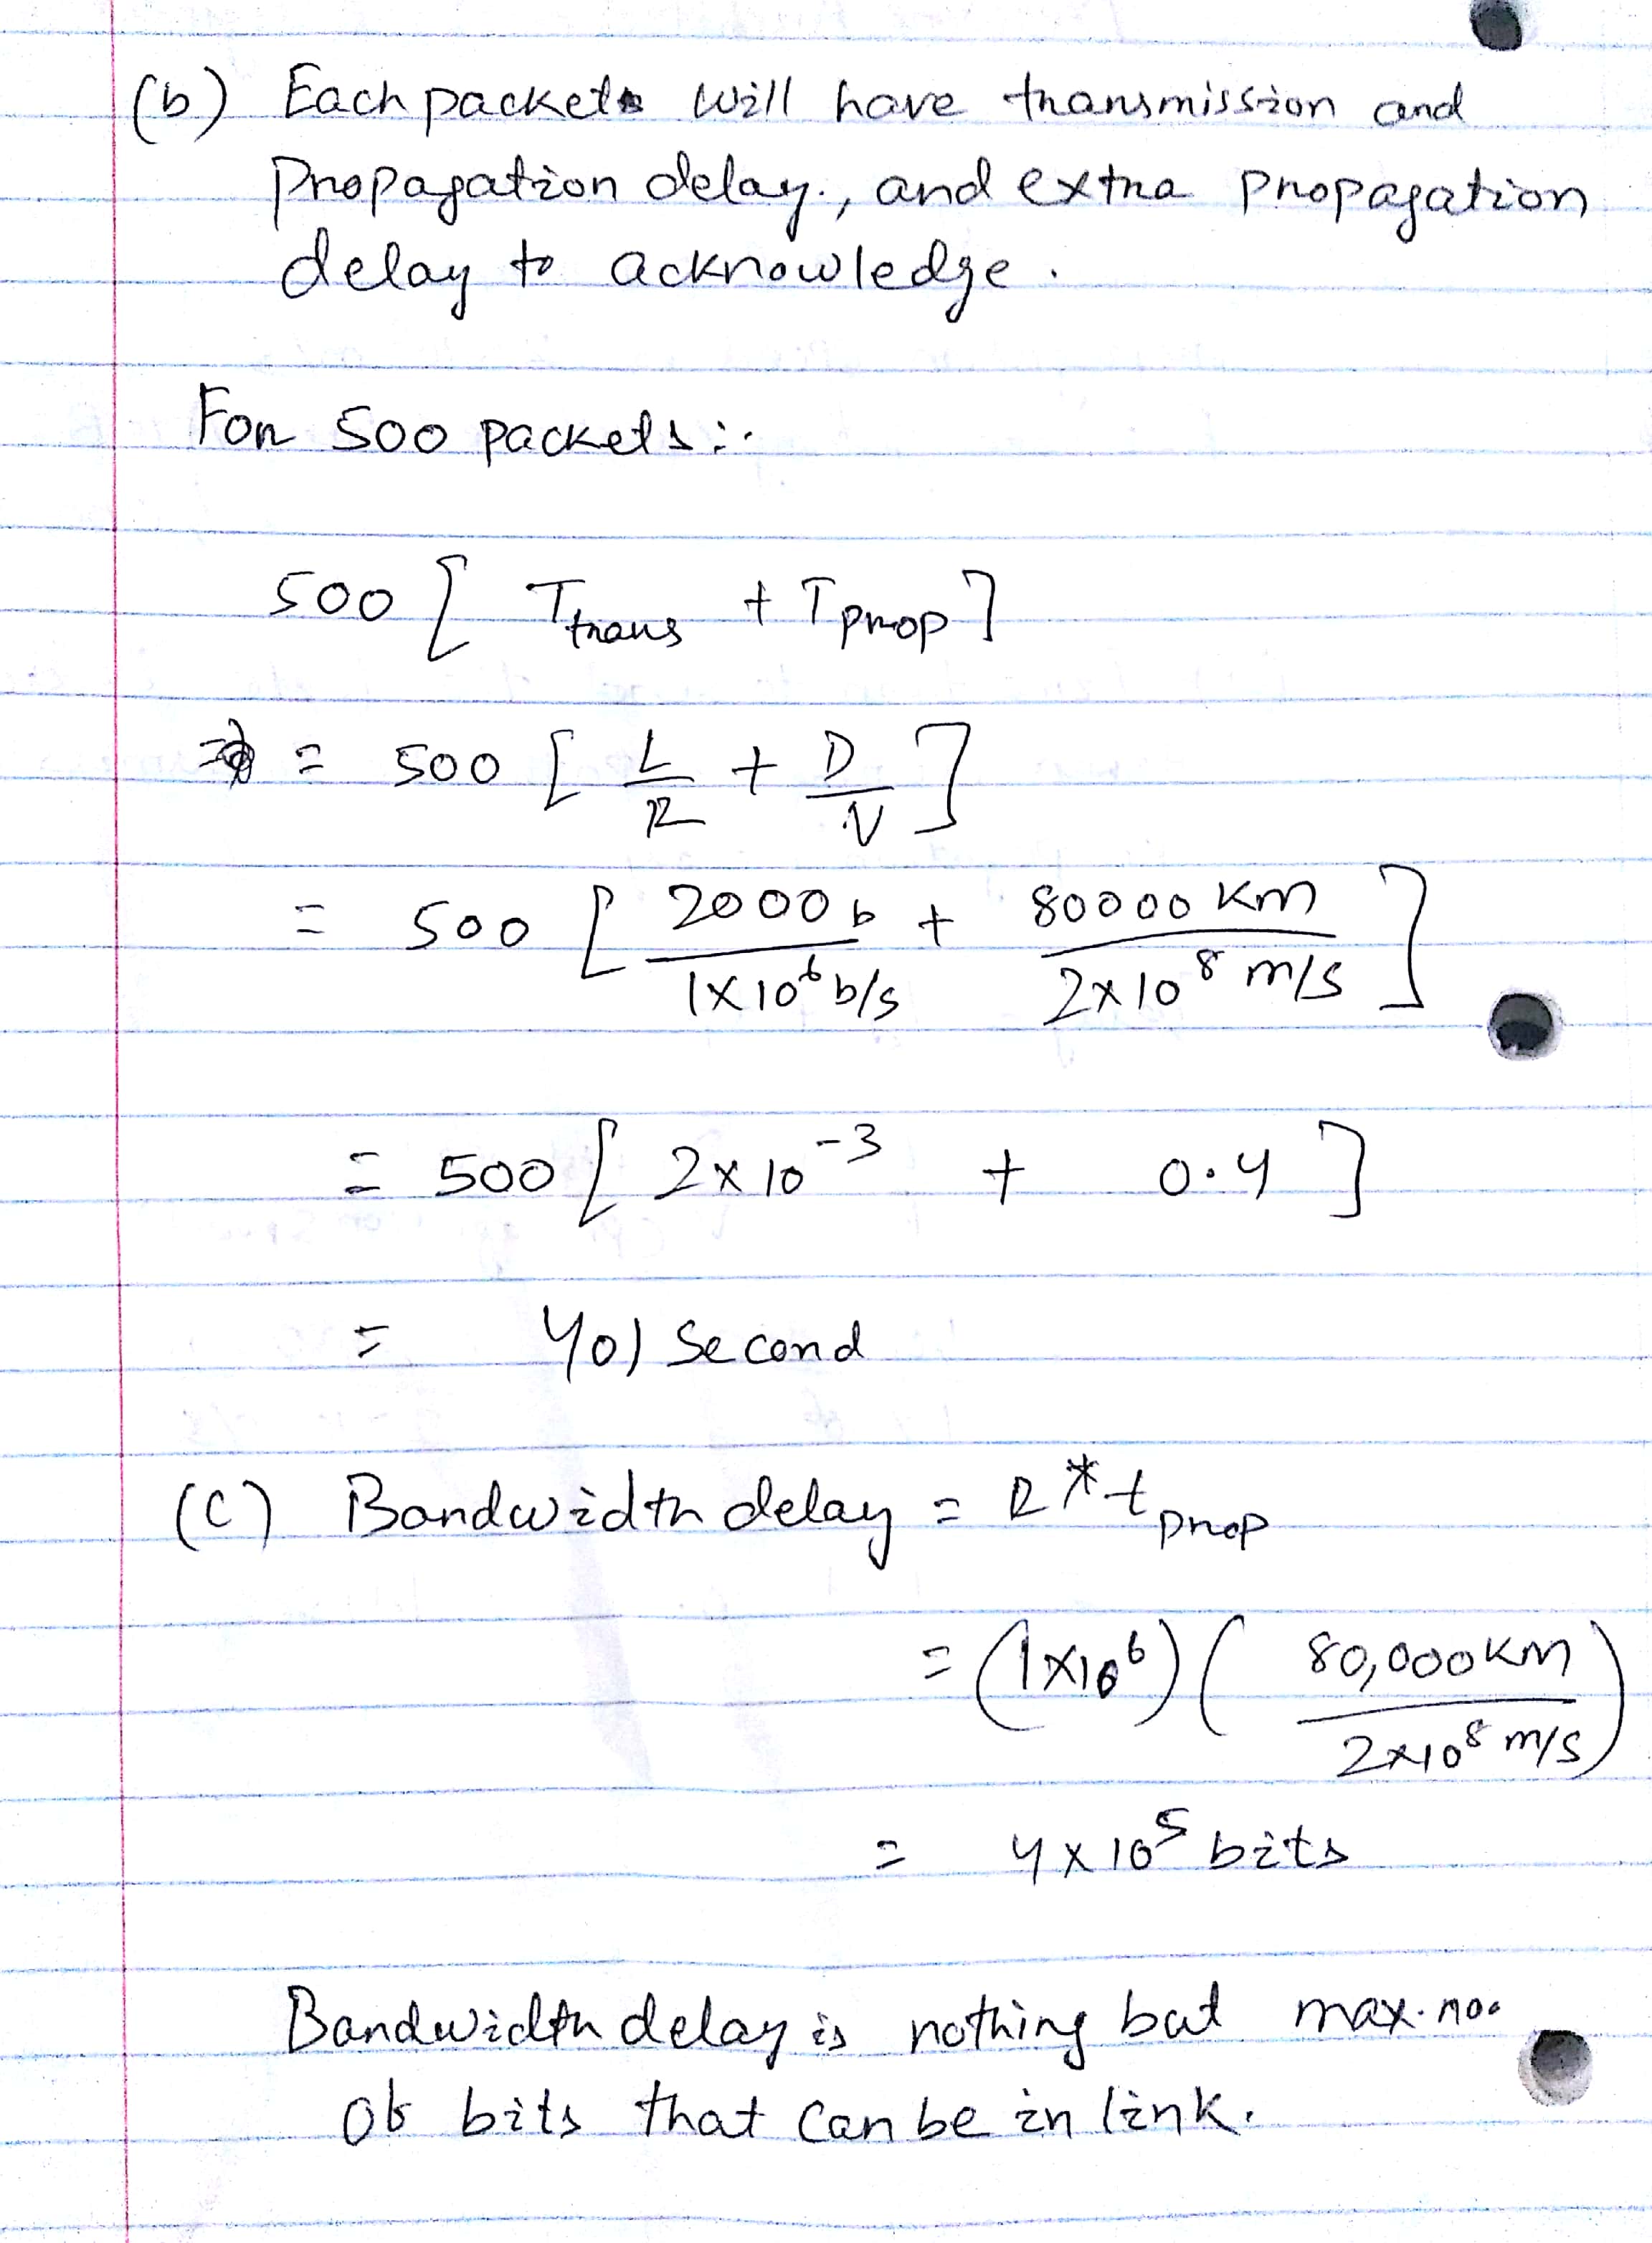 (b) Each packets will have transmission and
propagation delay., and extra propagation
delay to acknowledge.
For 500 packets :-
500 [ T_trans + T_prop ]
= 500 [ L/R + D/V ]
= 500 [ 2000 b / 1×10^6 b/s + 80000 km / 2×10^8 m/s ]
= 500 [ 2×10^-3 + 0.4 ]
= 401 second
(C) Bandwidth delay = R * t_prop
= (1×10^6) ( 80,000 km / 2×10^8 m/s )
= 4×10^5 bits
Bandwidth delay is nothing but max. no.
of bits that can be in link.